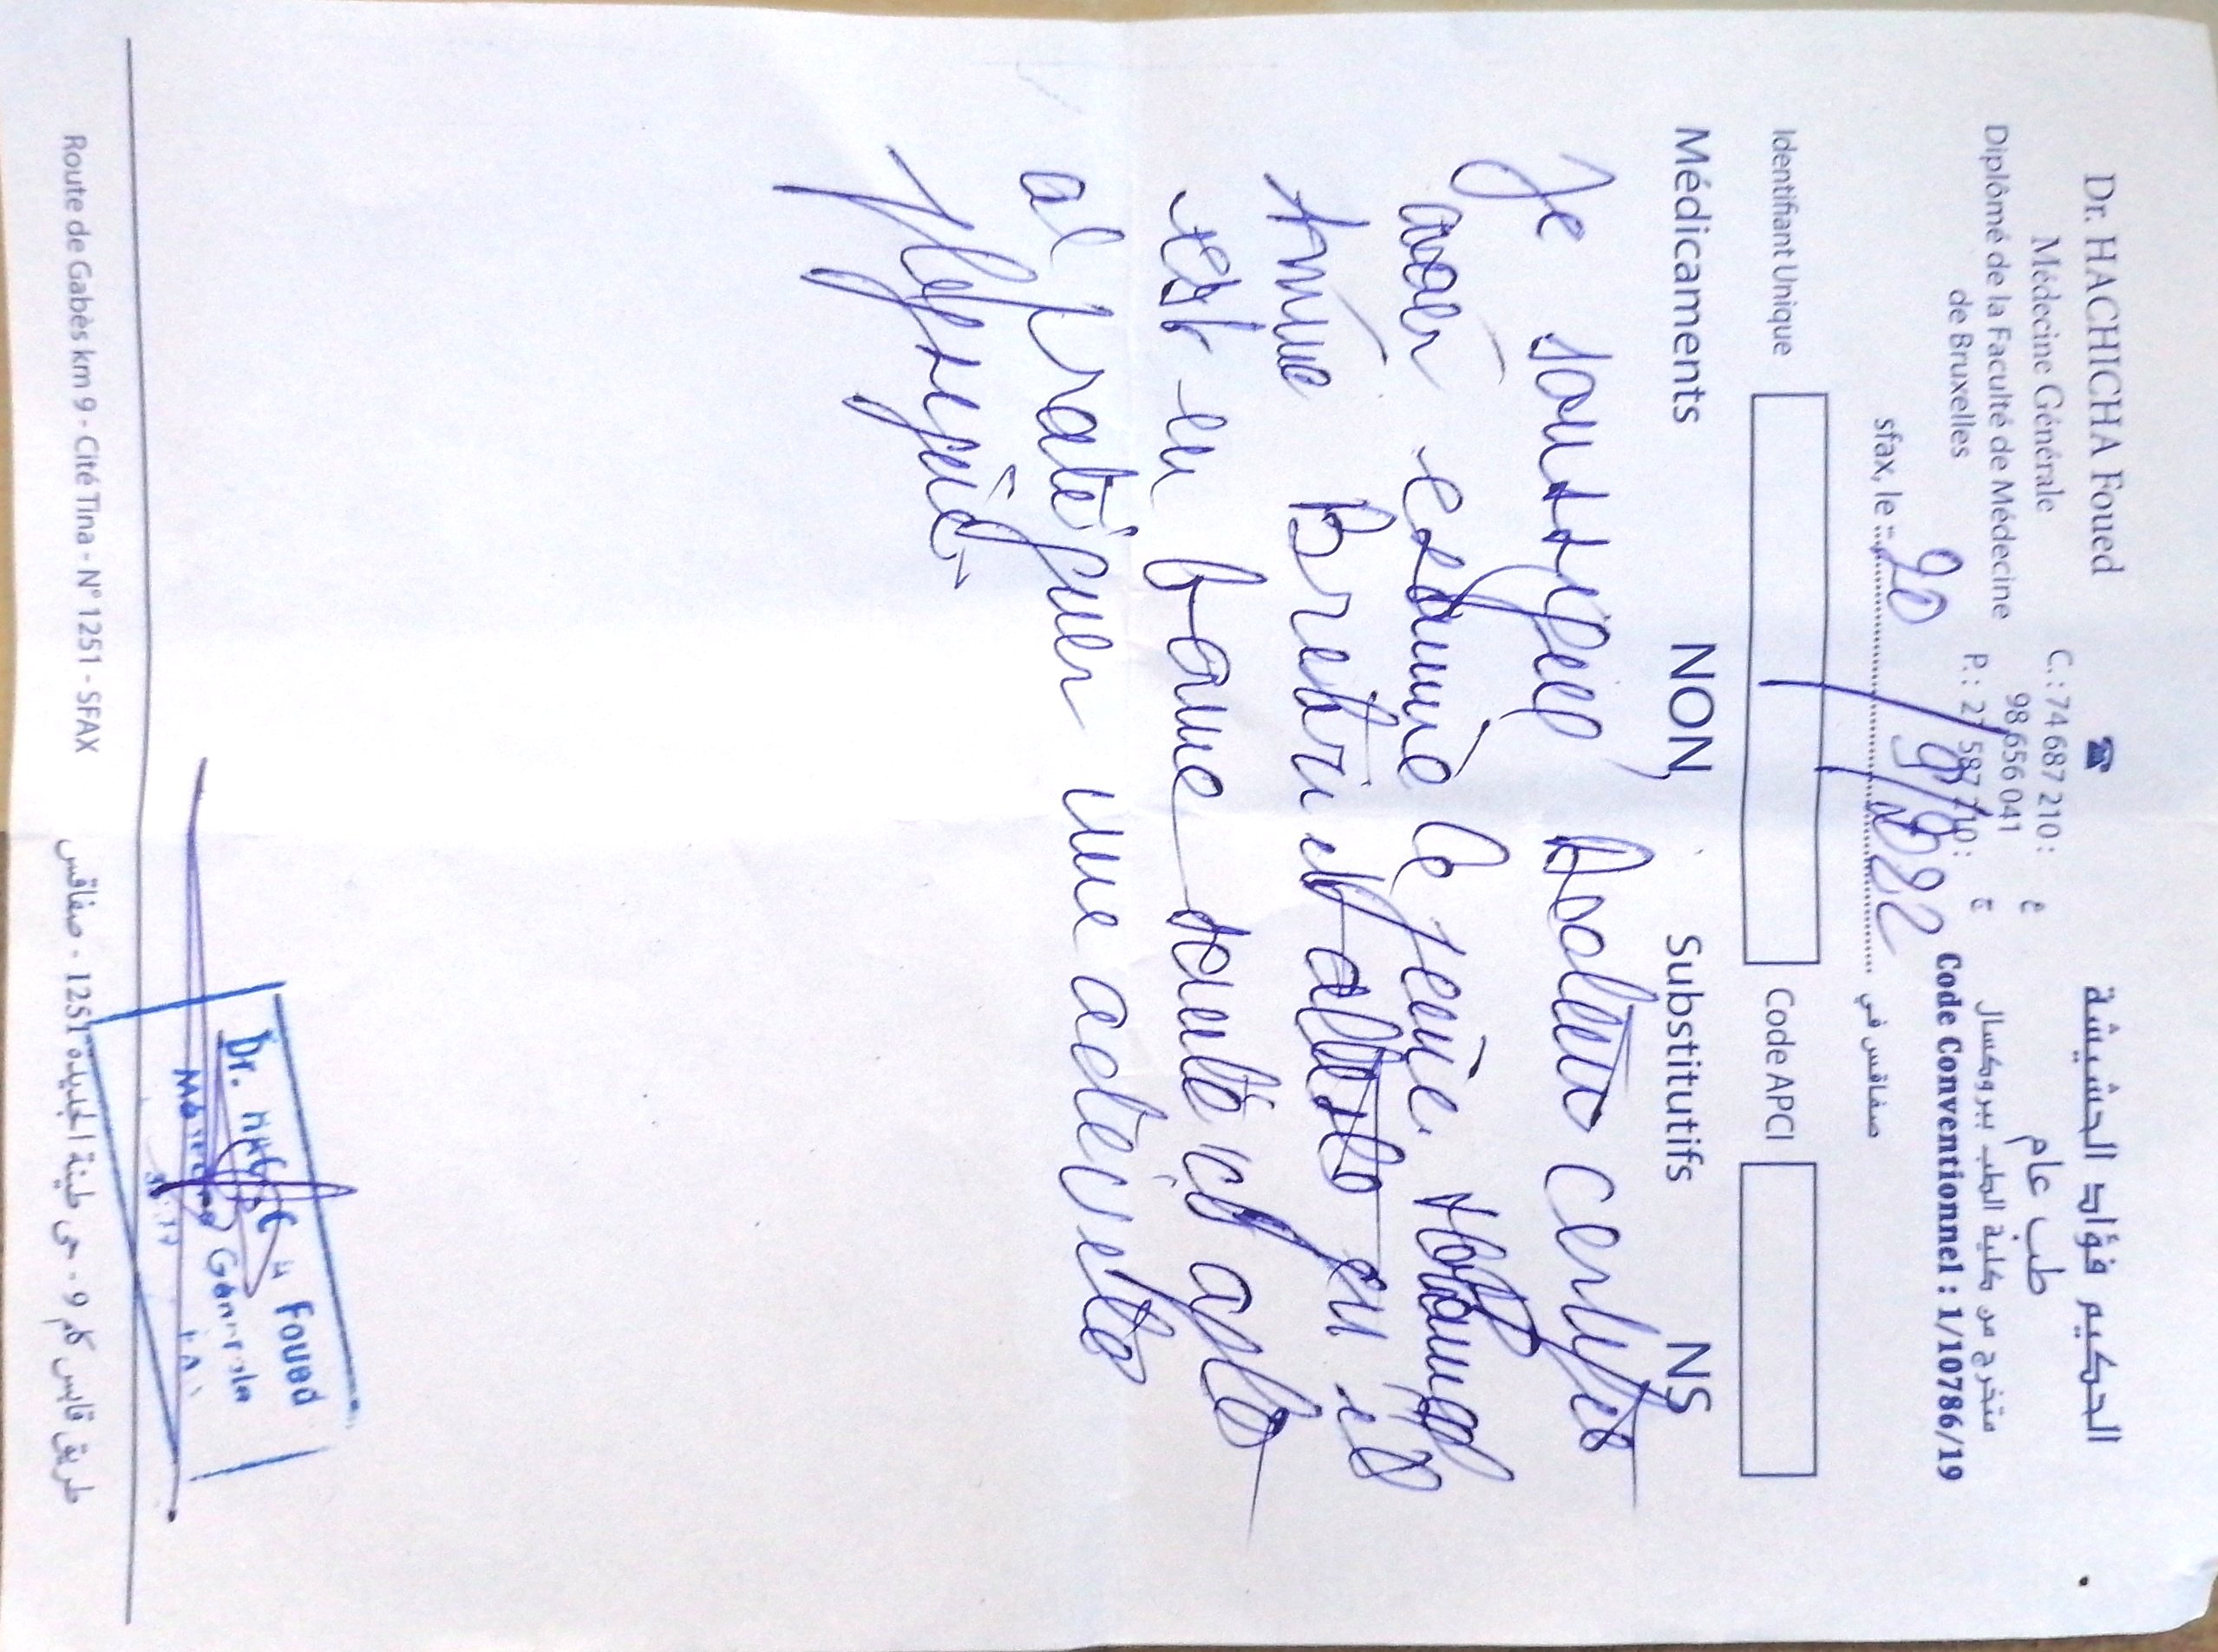 Dr. HACHICHA Foued
Médecine Générale
Diplômé de la Faculté de Médecine
de Bruxelles
☎
C. : 74 687 210 : ع
98 656 041
P. : 27 587 210 : ع
الحكيم فؤاد الحشيشة
طب عام
متخرج من كلية الطب ببروكسال
Code Conventionnel : 1/10786/19
sfax, le : 20/9/2022 صفاقس في
Identifiant Unique
Code APCI
Médicaments NON Substitutifs NS
Je soussigné Docteur certifie
avoir examiné le jeune
et atteste qu'il
est en bonne santé et apte
à pratiquer une activité
Dr. Foued
Route de Gabès km 9 - Cité Tina - N° 1251 - SFAX
طريق قابس كلم 9 - حي طينة الجديدة 1251 - صفاقس